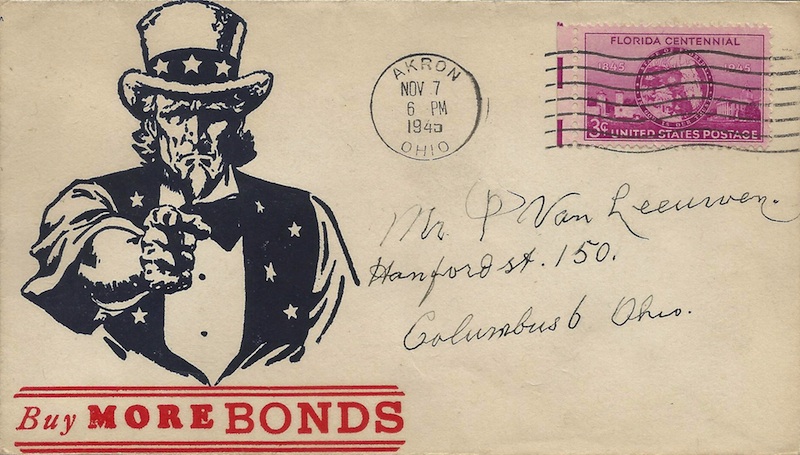 AKRON
NOV 7
6 PM
1945
OHIO
FLORIDA CENTENNIAL
1845 1945
3¢ UNITED STATES POSTAGE
Mr. P Van Leeuwen.
Hanford st. 150.
Columbus 6 Ohio.
Buy MORE BONDS